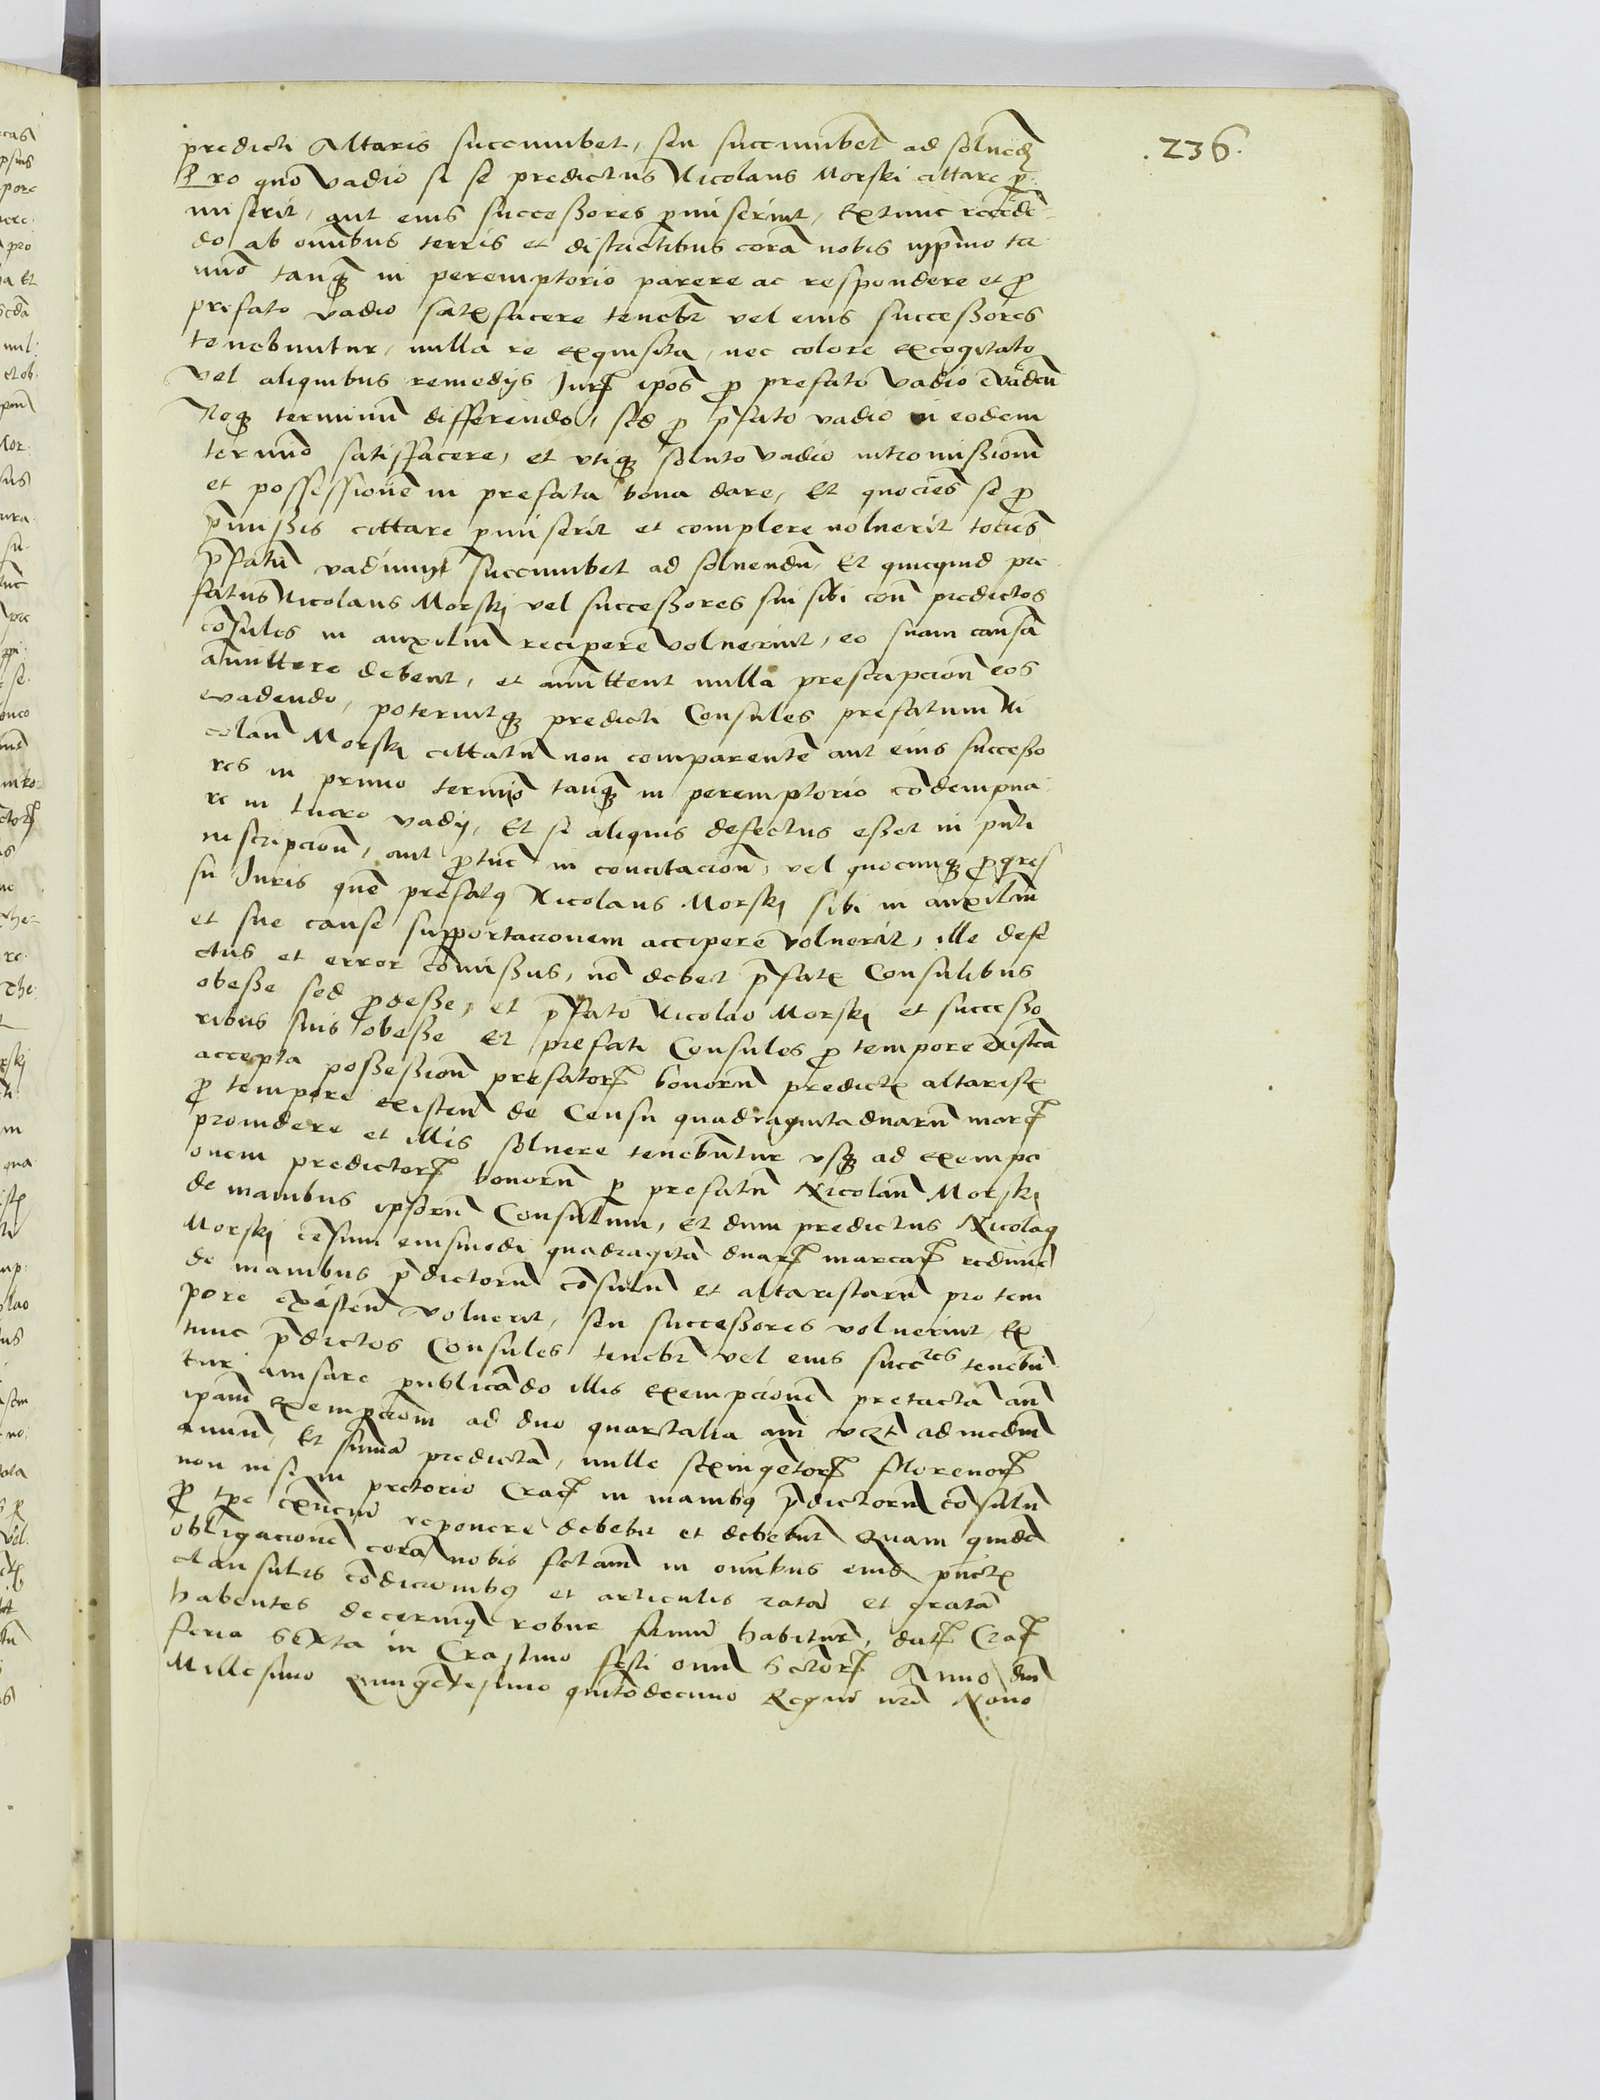 .236.
predicti Altaris succumbet, seu succumbet ad solvend
Pro quo vadio si se predictus Nicolaus Morski cittare p
miserit, aut eius successores pmiserint, Extunc recede
do ab omibus terris et districtibus corā nobis
mō tanq in peremptorio parere ac respondere et p
prefato vadio satfacere tenebt vel eius successores
tenebuntur, nulla re exquisita, nec colore excogitato
vel aliquibus remedijs Jur ipos p prefato vadio
Noq terminū differendo, sed p pfato vadio in eodem
termino satisfacere, et vtiq soluto vadio intromissionē
et possessionē in prefata bona dare, Et quociēs se p
pmissis cittare pmiserit et complere noluerit tociēs
pfatū vadium succumbet ad soluendū, Et quicquid pre
fatus Nicolaus Morskj vel successores sui sibi con predictos
cōsules in auxiliū recipere voluerint, eo suam causā
amittere debent, et amittent nulla prescripcion eos
evadendo, poteruntq predicti Consules prefatum Ni
colaū Morskj cittatū non comparentē aut eius successo
res in primo termino tanq in peremptorio cōdempna
re in lucro vadij, Et si aliquis defectus esset in pnti
inscripcion, aut in concitacion, vel quocunq pgres
su Juris quē prefatus Nicolaus Morskj sibi in auxiliū
et sue cause supportacionem accipere voluerit, ille defe
ctus et error cōmissus, nō debet pfat Consulibus
obesse sed pdesse, et pfato Nicolao Morskj et successo
ribus suis obesse Et prefati Consules p tempore
accepta possession prefator bonorū predict altarist
p tempore existen de Censu quadraginta duarū mar
prouidere et illis soluere tenebuntur vsq ad exempci
onem predictor bonorū p prefatū Nicolaū Morskj
de manibus ipsorū Consulum, et dum predictus Nicolaus
Morskj cēsum eiusmodi quadraginta duar marcar redime
de manibus pdictorū cōsulū et altaristarū pro tem
pore existen voluerit, seu successores voluerint, Ex
tunc pdictos Consules tenebt vel eius succres tenebū
tur auisare publicādo illis exempcionē pretactā an
ipam exempcionē ad duo quartalia ani ad mediū
annū, Et sūmā predictā, mille sexingētor florenor
non nisi in pretorio Crac in manibus pdictorū cōsulū
p tpe reponere debebit et debebūt Quam quidē
obligacionē corā nobis fctam in omibus eius punct
clausulis cōdicionibus et articulis ratā et gratā
habentes decernimus robur firmū habiturā, dat Crac
feria sexta in Crastino festi omī sctor Anno dni
Millesimo Quingētesimo quintodecimo Regni nri Nono